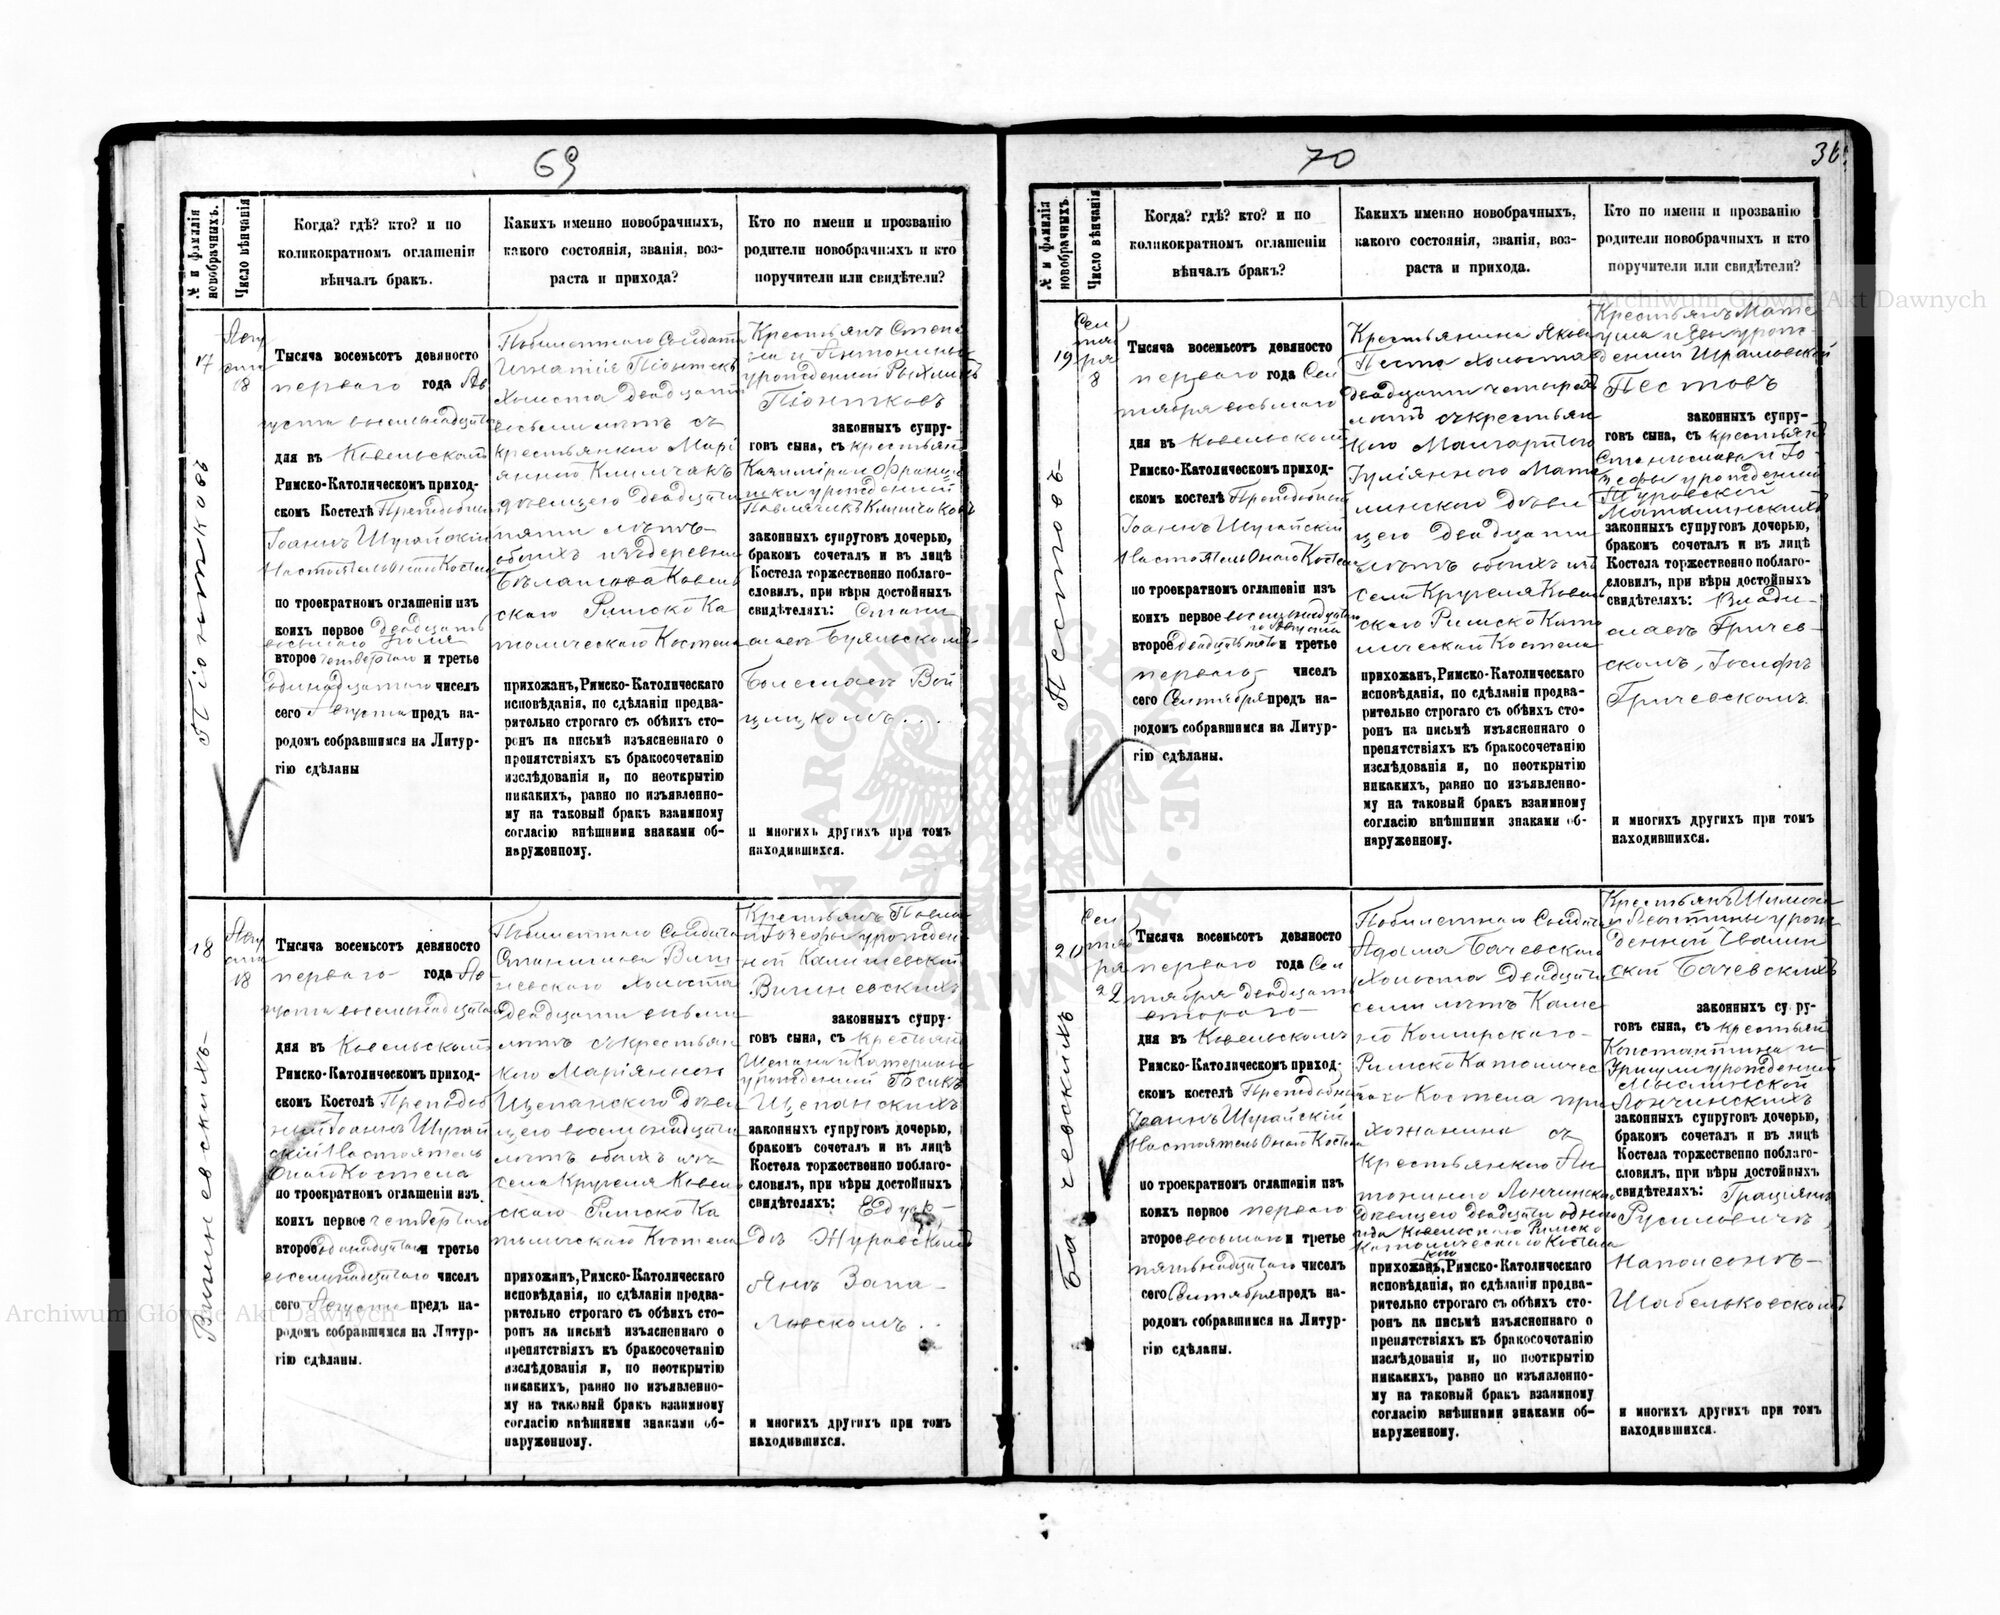 69
№ и фамилія новобрачныхъ.
Число вѣнчанія
Когда? гдѣ? кто? и по
коликократномъ оглашеніи
вѣнчалъ бракъ.
Какихъ именно новобрачныхъ,
какого состоянія, званія, воз-
раста и прихода?
Кто по имени и прозванію
родители новобрачныхъ и кто
поручители или свидѣтели?
17
Піонтковъ
Авгу
ста
18
Тысяча восемьсотъ девяносто
перваго года Ав
густа восемьнадцатаго
дня въ Ковельскомъ
Римско-Католическомъ приход-
скомъ Костелѣ Преподобный
Іоаннъ Шугайскій
Настоятель Онаго Костела
по троекратномъ оглашеніи изъ
коихъ первое двадцать
восьмаго Іюля
второе четвертаго и третье
одинадцатаго чиселъ
сего Августа предъ на-
родомъ собравшимся на Литур-
гію сдѣланы
Побилетнаго Солдата
Игнатія Піонтекъ
Холоста двадцати
восьми лѣтъ съ
крестьянкою Марі
янною Климчакъ
дѣвицею двадцати
пяти лѣтъ
обоихъ изъ деревни
Ковель
скаго Римско Ка
толическаго Костела
прихожан, Римско-Католическаго
исповѣданія, по сдѣланіи предва-
рительно строгаго съ обѣихъ сто-
ронъ на письмѣ изъясненнаго о
препятствіяхъ къ бракосочетанію
изслѣдованія и, по неоткрытію
никакихъ, равно по изъявленно-
му на таковый бракъ взаимному
согласію внѣшними знаками об-
наруженному.
Крестьянъ Степа
на и Антонины
урожденной
Піонтковъ
законныхъ супру-
говъ сына, съ крестьянъ
Казиміра и Франци
шки урожденной
Климчаковъ
законныхъ супруговъ дочерью,
бракомъ сочеталъ и въ лицѣ
Костела торжественно поблаго-
словилъ, при вѣры достойныхъ
свидѣтеляхъ: Стани
славъ
Болеславъ Вой
цицкомъ . . .
и многихъ другихъ при томъ
находившихся.
18
Вишневскихъ
Авгу
ста
18
Тысяча восемьсотъ девяносто
перваго года Ав
густа восемьнадцатаго
дня въ Ковельскомъ
Римско-Католическомъ приход-
скомъ Костелѣ Преподоб
ный Іоаннъ Шугай
скій Настоятель
Онаго Костела
по троекратномъ оглашеніи изъ
коихъ первое четвертаго
второе одинадцатаго и третье
восемьнадцатаго чиселъ
сего Августа предъ на-
родомъ собравшимся на Литур-
гію сдѣланы.
Побилетнаго Солдата
Станислава Виш
невскаго Холоста
двадцати восьми
лѣтъ съ крестьян
кою Маріянною
Щепанскою дѣви
цею восемьнадцати
лѣтъ обоихъ изъ
села Кругеля Ковель
скаго Римско Ка
толическаго Костела
прихожан, Римско-Католическаго
исповѣданія, по сдѣланіи предва-
рительно строгаго съ обѣихъ сто-
ронъ на письмѣ изъясненнаго о
препятствіяхъ къ бракосочетанію
изслѣдованія и, по неоткрытію
никакихъ, равно по изъявленно-
му на таковый бракъ взаимному
согласію внѣшними знаками об-
наруженному.
Крестьянъ Павла
и Іозефы урожден
ной Калишевской
Вишневскихъ
законныхъ супру-
говъ сына, съ крестьянъ
Щепана и Катерины
урожденной
Щепанскихъ
законныхъ супруговъ дочерью,
бракомъ сочеталъ и въ лицѣ
Костела торжественно поблаго-
словилъ, при вѣры достойныхъ
свидѣтеляхъ: Едуар
дъ Журавскомъ
Янъ Запа
ловскомъ . .
и многихъ другихъ при томъ
находившихся.
70
36
№ и фамилія новобрачныхъ.
Число вѣнчанія
Когда? гдѣ? кто? и по
коликократномъ оглашеніи
вѣнчалъ бракъ?
Какихъ именно новобрачныхъ,
какого состоянія, званія, воз-
раста и прихода.
Кто по имени и прозванію
родители новобрачныхъ и кто
поручители или свидѣтели?
19
Пестовъ
Сен
тяб
ря
8
Тысяча восемьсотъ девяносто
перваго года Сен
тября восьмаго
дня въ Ковельскомъ
Римско-Католическомъ приход-
скомъ костелѣ Преподобный
Іоаннъ Шугайскій
Настоятель Онаго Костела
по троекратномъ оглашеніи изъ
коихъ первое восемьнадцата
го Августа
второе двадцать пято и третье
перваго чиселъ
сего Сентября предъ на-
родомъ собравшимся на Литур-
гію сдѣланы.
Крестьянина Якова
Песта Холоста
двадцати четырехъ
лѣтъ съ крестьян
кою
Іуліянною Мата
линскою дѣви
цею двадцати
лѣтъ обоихъ изъ
села Кругеля Ковель
скаго Римско Като
лическаго Костела
прихожан, Римско-Католическаго
исповѣданія, по сдѣланіи предва-
рительно строгаго съ обѣихъ сто-
ронъ на письмѣ изъясненнаго о
препятствіяхъ къ бракосочетанію
изслѣдованія и, по неоткрытію
никакихъ, равно по изъявленно-
му на таковый бракъ взаимному
согласію внѣшними знаками об-
наруженному.
Крестьянъ Мате
уша и Евы урож
денной Шрамовской
Пестовъ
законныхъ супру-
говъ сына, съ крестьянъ
Станислава и Іо
зефы урожденной
Туровской
Маталинскихъ
законныхъ супруговъ дочерью,
бракомъ сочеталъ и въ лицѣ
Костела торжественно поблаго-
словилъ, при вѣры достойныхъ
свидѣтеляхъ: Влади
славъ Гричев
скомъ, Іосифъ
Гричевскомъ.
и многихъ другихъ при томъ
находившихся.
20
Бачевскихъ
Сен
тяб
ря
22
Тысяча восемьсотъ девяносто
перваго года Сен
тября двадцать
втораго
дня въ Ковельскомъ
Римско-Католическомъ приход-
скомъ костелѣ Преподобный
Іоаннъ Шугайскій
Настоятель Онаго Костела
по троекратномъ оглашеніи изъ
коихъ первое перваго
второе восьмаго и третье
пятьнадцатаго чиселъ
сего Сентября предъ на-
родомъ собравшимся на Литур-
гію сдѣланы.
Побилетнаго Солдата
Адама Бачевскаго
Холоста двадцати
семи лѣтъ Каме
но Коширскаго
Римско Католичес
каго Костела при
хожанина съ
Крестьянкою Ан
тониною Лончинскою
дѣвицею двадцати одного
года Ковельскаго Римско
Католическаго Костела
кою
прихожан, Римско-Католическаго
исповѣданія, по сдѣланіи предва-
рительно строгаго съ обѣихъ сто-
ронъ на письмѣ изъясненнаго о
препятствіяхъ къ бракосочетанію
изслѣдованія и, по неоткрытію
никакихъ, равно по изъявленно-
му на таковый бракъ взаимному
согласію внѣшними знаками об-
наруженному.
Крестьянъ Шимона
и урож
денной Гвалин
ской Бачевскихъ
законныхъ супру-
говъ сына, съ крестьянъ
Константина и
Уршули урожденной
Мыслинской
Лончинскихъ
законныхъ супруговъ дочерью,
бракомъ сочеталъ и въ лицѣ
Костела торжественно поблаго-
словилъ, при вѣры достойныхъ
свидѣтеляхъ: Граціянъ
Русиловичъ
Наполеонъ
Шабельковскомъ
и многихъ другихъ при томъ
находившихся.
Archiwum Główne Akt Dawnych
Archiwum Główne Akt Dawnych
ARCHIWUM GŁÓWNE AKT DAWNYCH